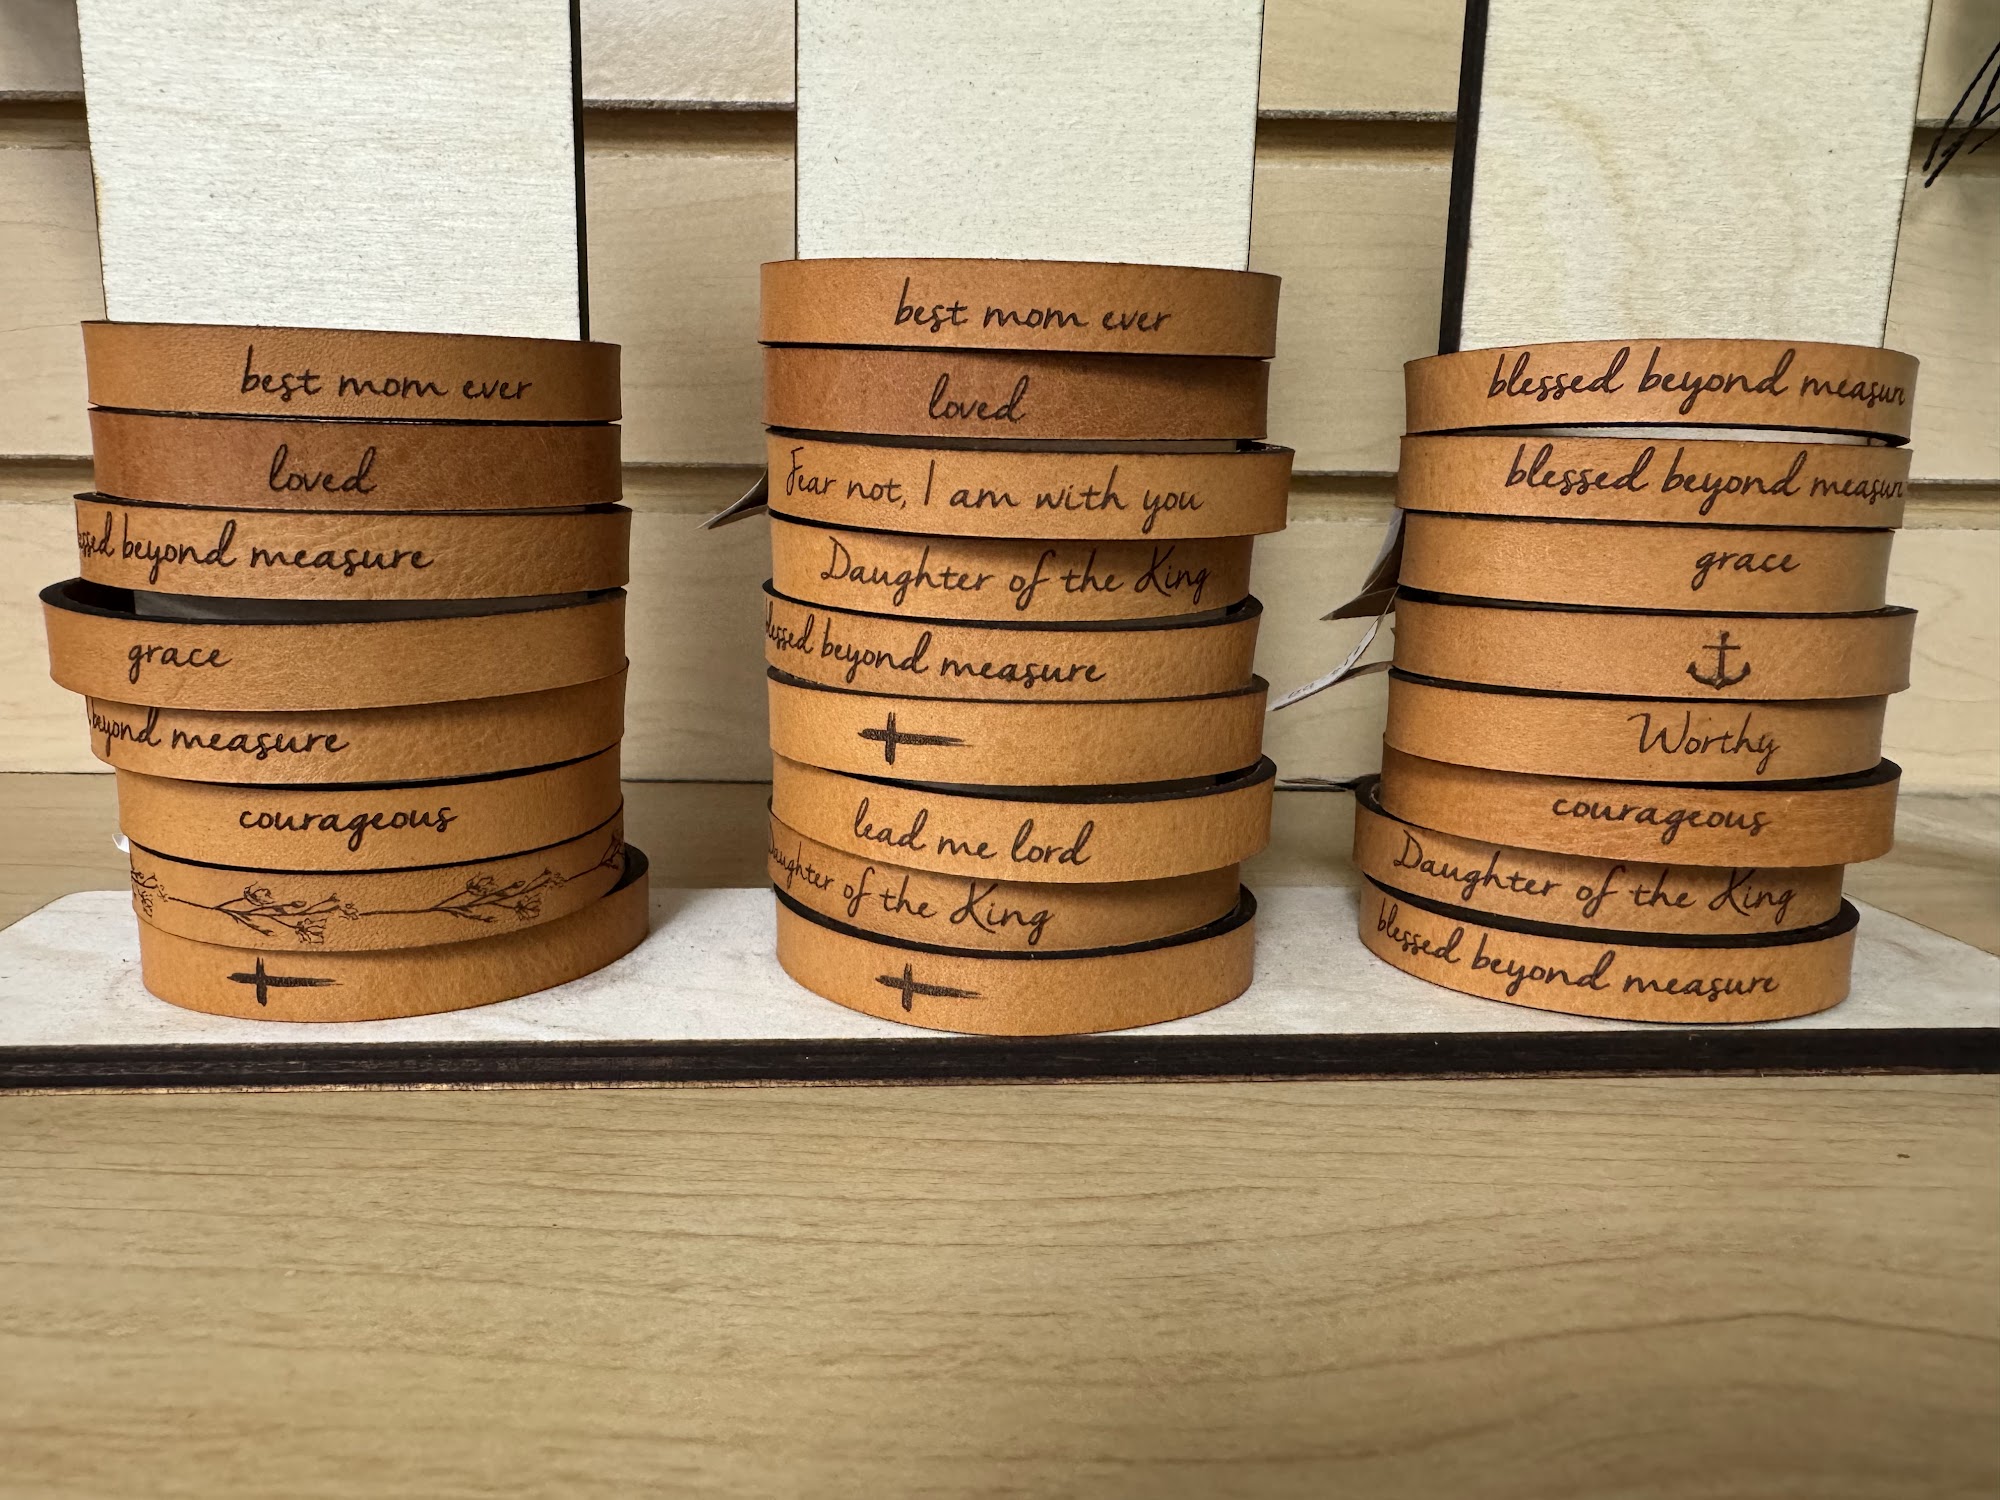 best mom ever
loved
essed beyond measure
grace
beyond measure
courageous
best mom ever
loved
Fear not, I am with you
Daughter of the King
blessed beyond measure
lead me lord
Daughter of the King
blessed beyond measur
blessed beyond measur
grace
Worthy
courageous
Daughter of the King
blessed beyond measure